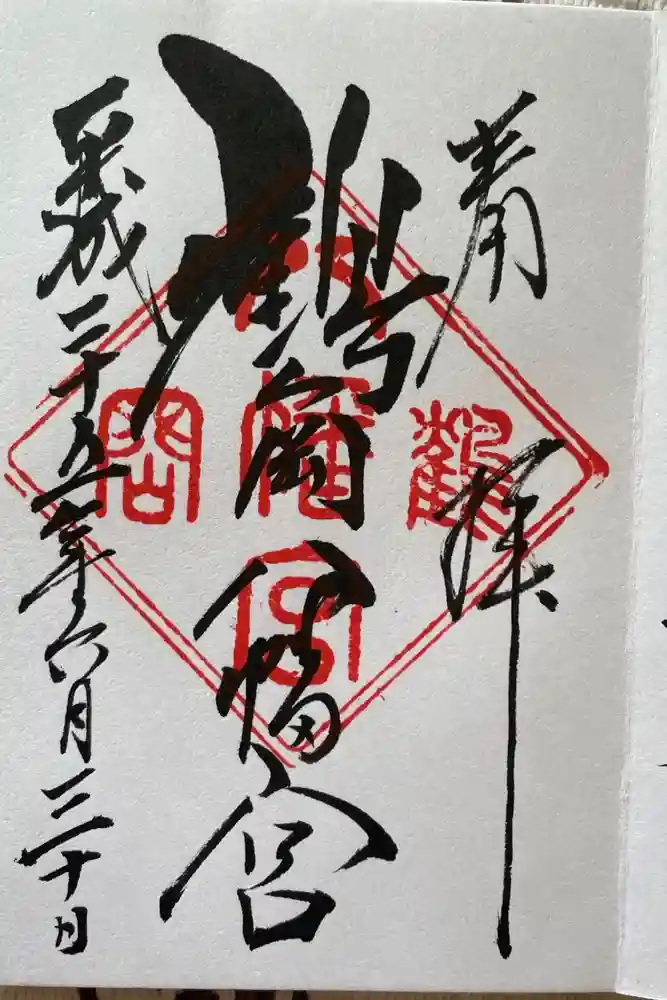 奉拝
鶴岡八幡宮
平成二十五年六月三十日
鶴
八
幡
宮
岡